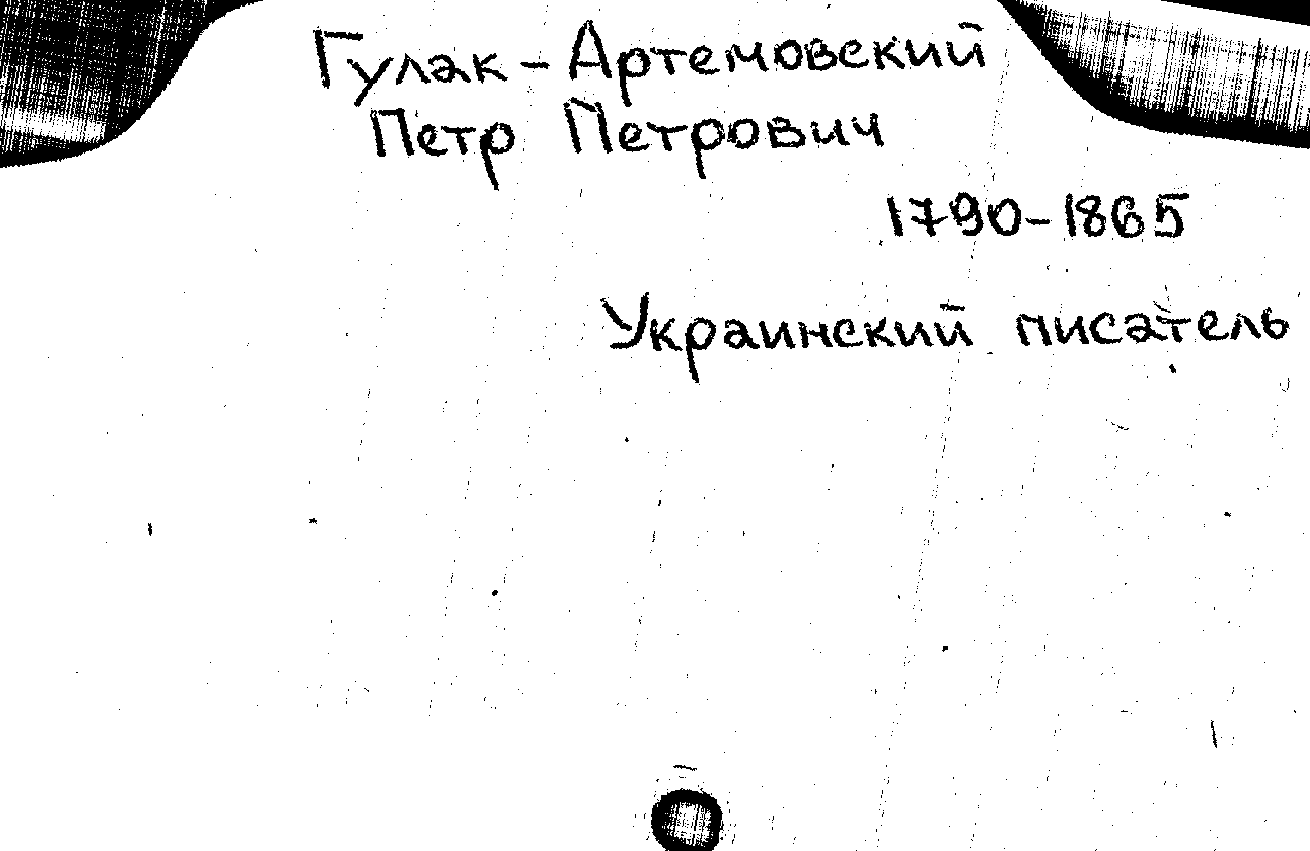 Гулак-Артемовский
Петр Петрович
1790-1865
Украинский писатель